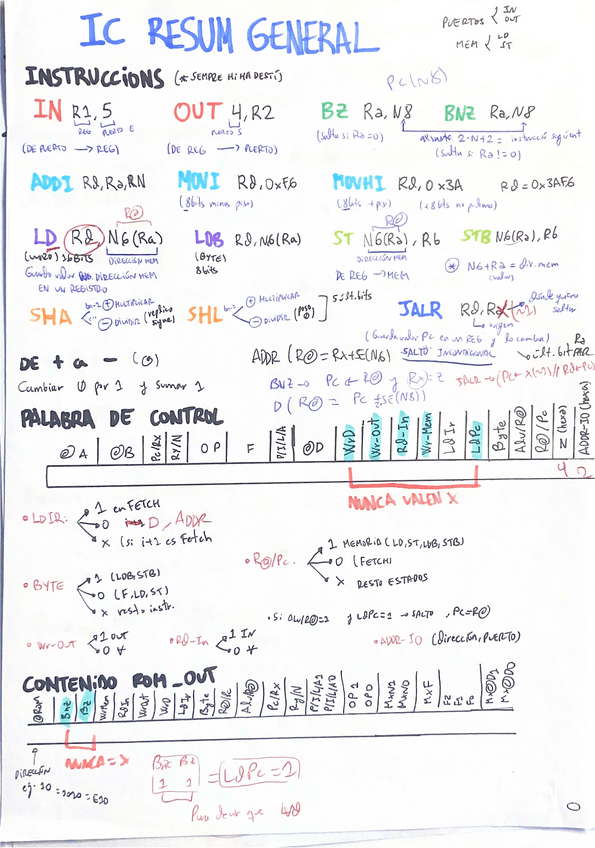 IC RESUM GENERAL
PUERTOS IN OUT
MEM LD ST
INSTRUCCIONS (* SEMPRE HI HA DESTÍ)
PC(N8)
IN R1, 5
REG PUERTO E
(DE PUERTO → REG)
OUT 4, R2
PUERTO S
(DE REG → PUERTO)
BZ Ra, N8
(salta si Ra=0)
BNZ Ra, N8
2·N+2 = instrucció següent
(salta si Ra != 0)
ADDI Rd, Ra, RN
MOVI Rd, 0xF6
(8bits menos peso)
MOVHI Rd, 0x3A
(8bits + peso)
Rd = 0x3AF6
R@
LD Rd N6(Ra)
(WORD) 16BITS
DIRECCIÓN MEM
Guarda valor DIRECCIÓN MEM
EN UN REGISTRO
LDB Rd, N6(Ra)
(BYTE)
8bits
R@
ST N6(Ra), Rb
DIRECCIÓN MEM
DE REG → MEM
STB N6(Ra), Rb
* N6+Ra = dir. mem
SHA + MULTIPLICAR
- DIVIDIR (replica signe)
SHL + MULTIPLICAR
- DIVIDIR
5 últ. bits
JALR Rd, Ra
origen
(Guarda valor PC en un REG y lo cambia)
DE + a -
Cambiar 0 por 1 y sumar 1
ADDR (R@ = Rx+SE(N6)
SALTO INCONDICIONAL
últ. bit Ra PAR
BNZ → PC ← R@ y Rx = Z
D ( R@ = PC + SE(N8))
PALABRA DE CONTROL
@A
@B
Pc/Rx
Ry/N
OP
F
P/I/L/A
@D
WrD
Wr-Out
Rd-In
Wr-Mem
LdIr
LdPc
Byte
Alu/R@
R@/Pc
Z (hexa)
ADDR-IO (hexa)
4
2
NUNCA VALEN X
• LDIR:
1 en FETCH
0 D, ADDR
x (si i+1 es Fetch
• R@/Pc.
1 MEMORIA (LD, ST, LDB, STB)
0 (FETCH)
x RESTO ESTADOS
• BYTE
1 (LDB, STB)
0 (F, LD, ST)
x resto instr.
• Si ALU/R@=1 y LDPC=1 → SALTO, PC=R@
• Wr-Out
1 OUT
0
• Rd-In
1 IN
0
• ADDR-IO (dirección, PUERTO)
CONTENIDO ROM_OUT
@ROM
Bnz
Bz
WrMem
RdIn
WrOut
WrD
LdIr
Byte
R@/Pc
Alu/R@
Pc/Rx
Ry/N
P/I/L/A1
P/I/L/A0
OP 1
OP 0
MxN1
MxN0
MxF
F2
F1
F0
Mx@D1
Mx@D0
DIRECCIÓN
NUNCA = X
Bnz Bz
1 1
= LdPc = 1
Para decir que